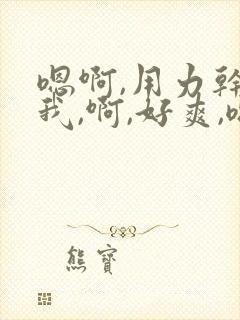 嗯啊,用力幹
我,啊,好爽,
熊寶